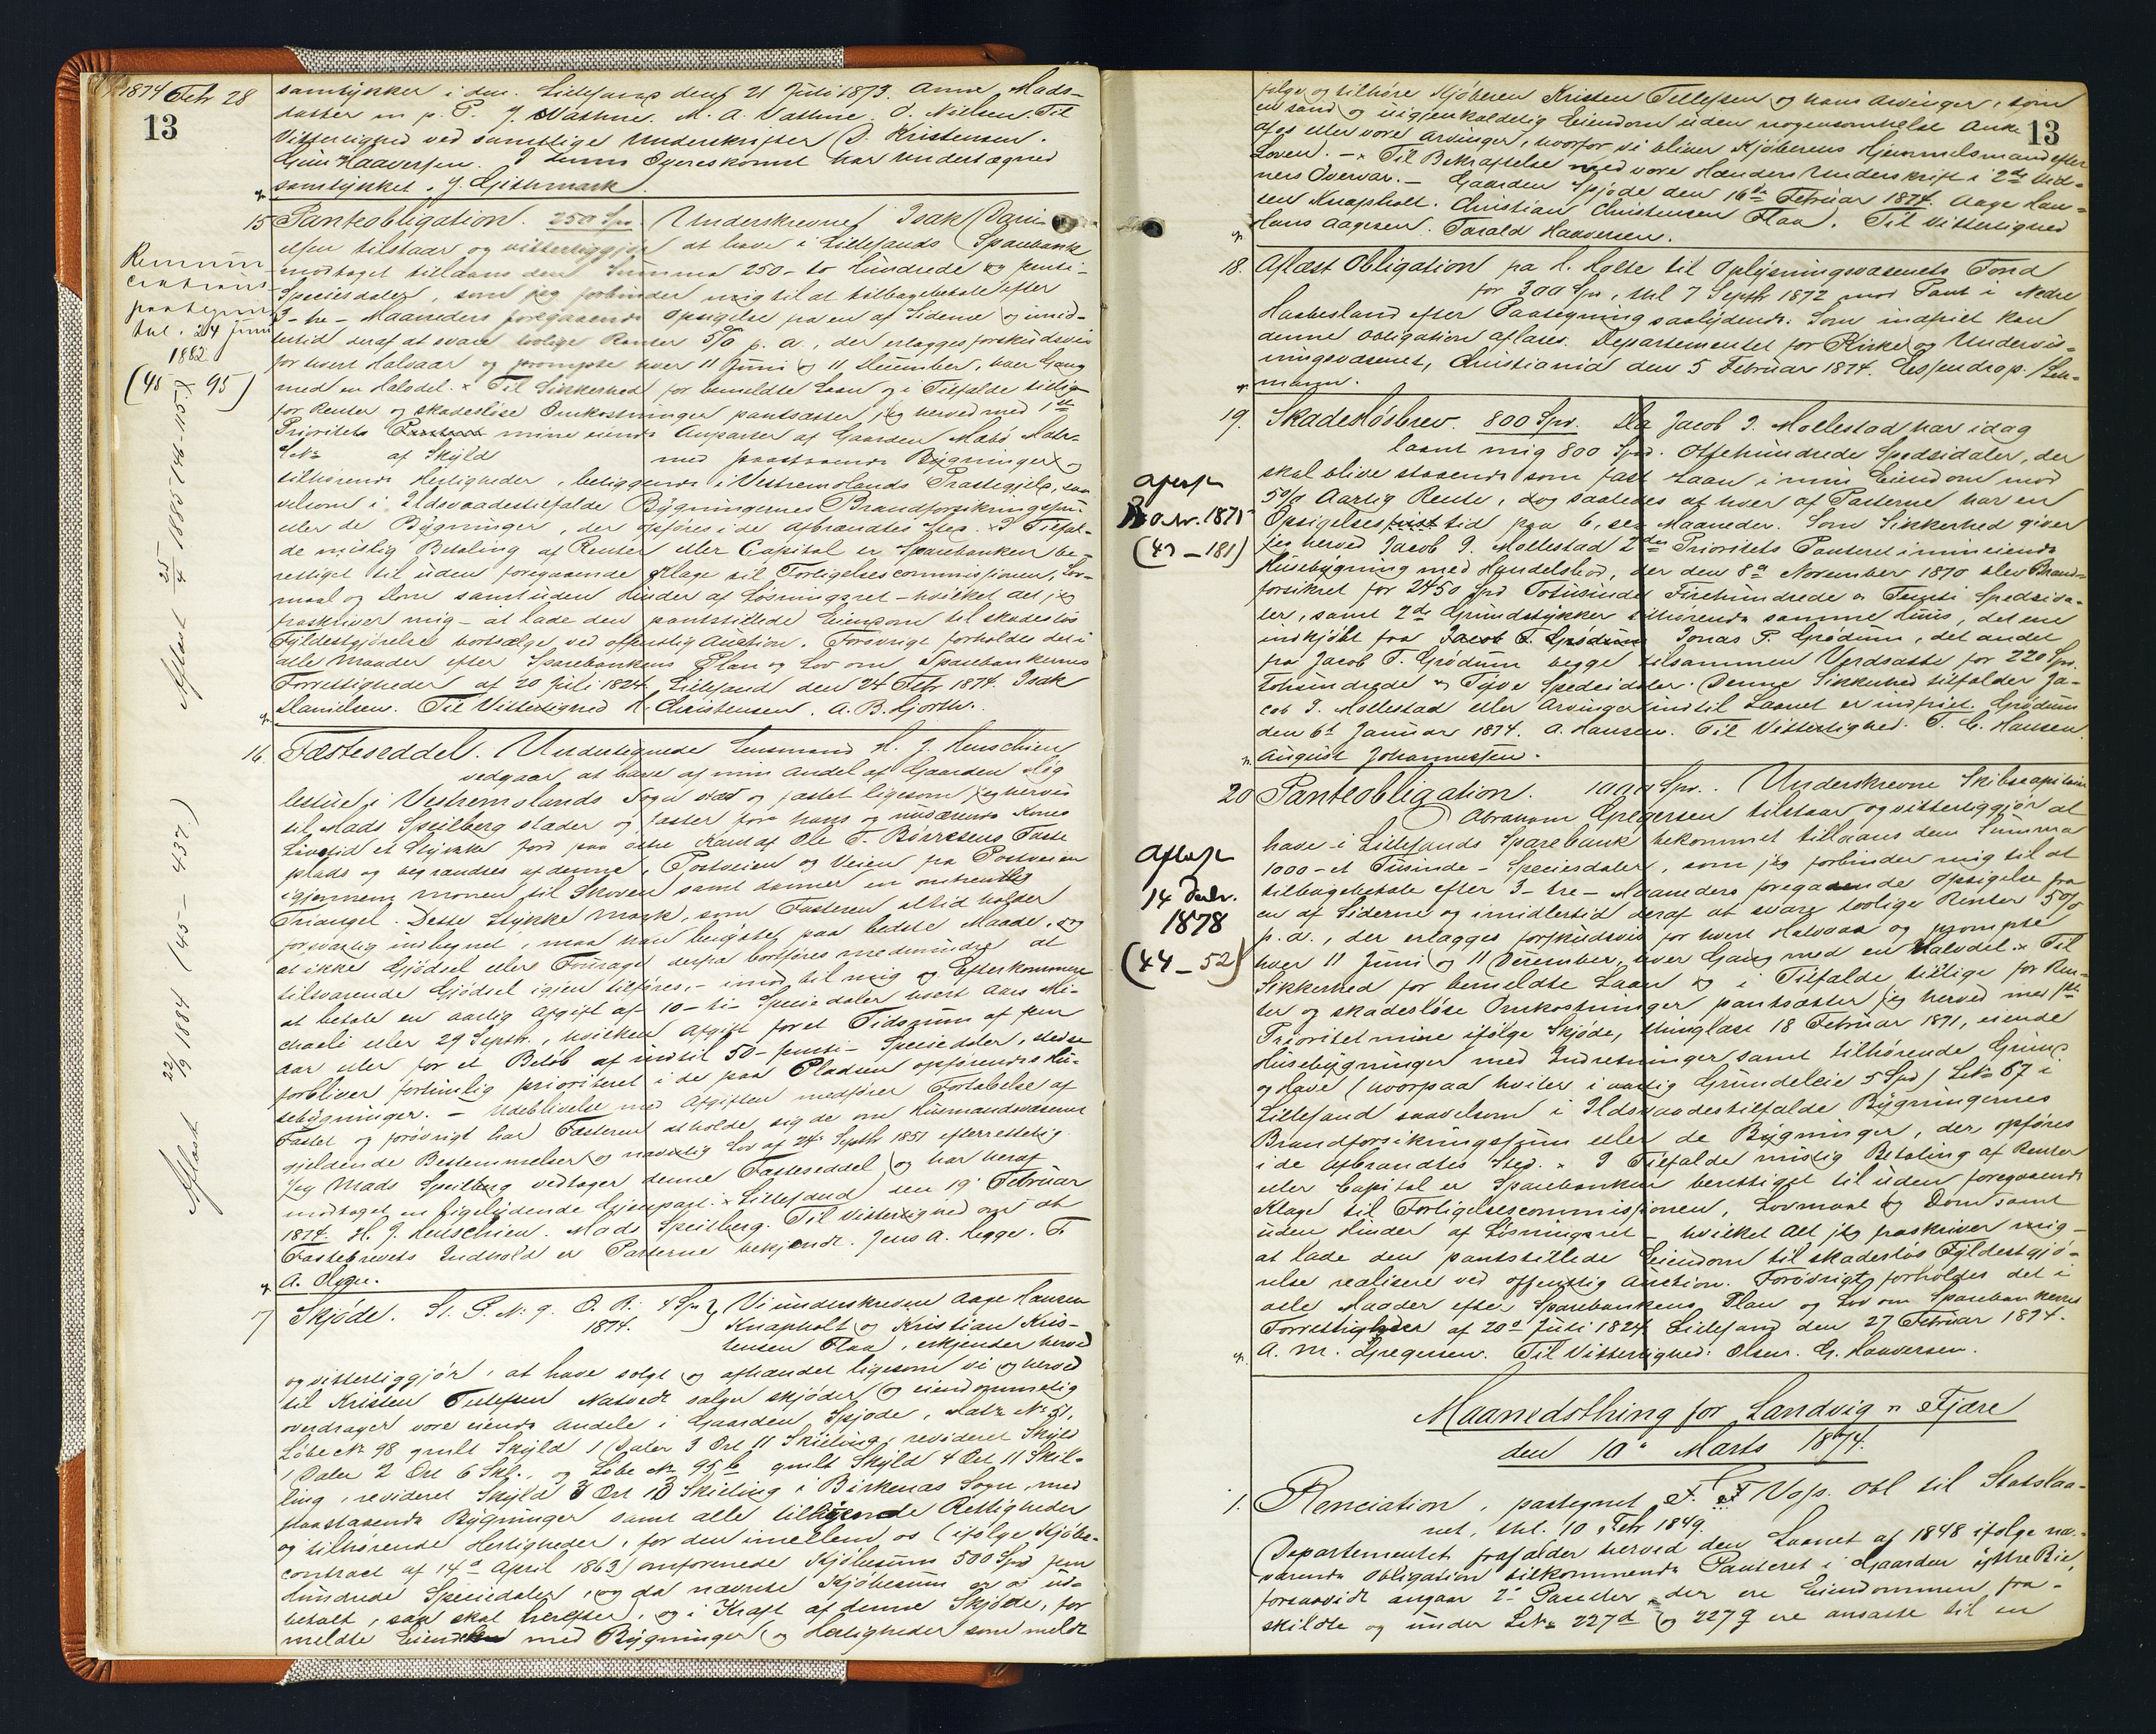 1874 Febr 28
13
samtykker i den. Lillesand den 21 Juli 1873. Anne Mads-
datter m. p. P. J. Vathne. M. A. Vathne. O. Nielsen. Til
Vitterlighed ved samtlige Underskrifter O. Kristensen.
Gun Haaversen. I denne Overeskomst har undertegned
samtykket. J. Gjithmark
15 Panteobligation. 250 Spd. Underskrevne Isak Dani-
elsen tilstaar og vitterliggjør at have i Lillesands Sparebank
modtaget tillaans den Summa 250 - to hundrede og femti -
Speciesdaler, som jeg forbinder mig til at tilbagebetale efter
3 - tre - Maaneders foregaaende Opsigelse fra en af Siderne og imid-
lertid deraf at svare lovlige Renter 5% p. a., der erlægges forskudsvis
for hvert Halvaar og prompte hver 11 Juni og 11 December, hver Gang
med en Halvdel. Til Sikkerhed for bemeldte Laan og i Tilfælde tillige
for Renter og skadesløse Omkostninger pantsætter jeg herved med 1ste
Prioritets Panteret mine eiende Anparter af Gaarden Mæbø Matr-
LNo af Skyld med paastaaende Bygninger og
tilhørende Herligheder, beliggende i Vestremolands Præstegjeld, saa-
velsom i Ildsvaadestilfælde Bygningernes Brandforsikringssum
eller de Bygninger, der opføres i de afbrændtes Sted. I Tilfæl-
de mislig Betaling af Renter eller Capital er Sparebanken be-
rettiget til uden foregaaende Klage til Forligelsescommissionen, Lov-
maal og Dom samt uden Hinder af Løsningsret - hvilket Alt jeg
fraskriver mig - at lade den pantstillede Eiendom til skadesløs
Fyldestgjørelse bortsælge ved offentlig Auction. Forøvrigt forholdes det i
alle Maader efter Sparebankens Plan og Lov om Sparebankernes
Forrettigheder af 20 Juli 1824. Lillesand den 24 Febr 1874. Isak
Danielsen. Til Vitterlighed H. Christensen. A. B. Hjorth.
Renun-
ciations-
paategning
thl. 24 Juni
1882
(45 - 95)
Aflæst 25/4 1885 (46-115)
16. Fæsteseddel. Undertegnede Lensmand H. J. Heuschien
vedgaar at have af min Andel af Gaarden Møg
lestue i Vestremolands Sogn stæd og fæstet ligesom jeg herved
til Mads Speilberg stæder og fæster for hans og nuværende Kones
Livstid et Stykke Jord paa østre Kant af Ole T. Børresens Fæste
plads og begrændses af denne, Postveien og Veien fra Postveien
igjennem Monen til Skoven samt danner en omtrentlig
Triangel. Dette Stykke Mark, som Fæsteren altid holder
forsvarlig indhegnet, maa han benytte paa bedste Maade, dog
at ikke Gjødsel eller Fourage derfra bortføres medmindre at
tilsvarende Gjødsel igjen tilføres, - imod til mig og Efterkommere
at betale en aarlig Afgift af 10 - ti - Speciedaler hvert Aars Mi-
chaeli eller 29 Septb., hvilken Afgift for et Tidsrum af fem
Aar eller for et Beløb af indtil 50 - femti - Speciedaler, stedse
forbliver fortrinlig prioriteret i de paa Pladsen opførendes Hu-
sebygninger. - Udeblivelse med Afgiften medfører Fortabelse af
Fæstet og forøvrigt har Fæsteren at holde sig de om Husmandsvæsenet
gjeldende Bestemmelser og navnlig Lov af 24de Septbr 1851 efterrettelig.
Jeg Mads Speilberg vedtager denne Fæsteseddel og har heraf
modtaget en ligelydende Gjenpart. Lillesand den 19 Februar
1874. H. J. Heuschien. Mads Speilberg. Til Vitterlighed om at
Fæstebrevets Indhold er Parterne bekjendt. Jens A. Hegge. T.
A. Olsen.
Aflæst 22/9 1884 (45 - 437.)
17 Skjøde. St. P. N: 9. O. R. 4 Spd 1874. Vi underskrevne Aage Hansen
Knapholt og Kristian Kris-
tensen Flaa, erkjender herved
og vitterliggjør, at have solgt og afhændet ligesom vi og herved
til Kristen Tellefsen Natvedt sælger skjøder og eiendommelig
overdrager vore eiende Andele i Gaarden Spjode, Matr No 51,
Løbe No 98 gml Skyld 1 Daler 3 Ort 11 Skilling, revideret Skyld
1 Daler 2 Ort 6 Skl., og Løbe No 95 b gml Skyld 4 Ort 11 Skil-
ling, revideret Skyld 3 Ort 13 Skilling i Birkenæs Sogn, med
paastaaende Bygninger samt alle tilliggende Rettigheder
og tilhørende Herligheder, for den imellem os (ifølge Kjøbe-
contract af 14de April 1863) omforenede Kjøbesum 500 Spd fem
hundrede Speciedaler, og da nævnte Kjøbesum er os ud-
betalt, saa skal herefter, og i Kraft af denne Skjøde, for
meldte Eiendom med Bygninger og Herligheder som meldt
13
følge og tilhøre Kjøberen Kristen Tellefsen og hans Arvinger, som
en sand og uigjenkaldelig Eiendom uden nogensomhelst Anke
af os eller vore Arvinger, hvorfor vi bliver Kjøberens Hjemmelsmand efter
Loven. - Til Bekræftelse med vore Hænders Underskrift i 2de Vid-
ners Overvær. - Gaarden Spjode den 16de Februar 1874. Aage Han-
sen Knapholt. Christian Christensen Flaa. Til Vitterlighed
Hans Aagesen. Tarald Haaversen.
18. Aflæst Obligation fra H. Holte til Oplysningsvæsenets Fond
for 300 Spd, thl 7 Septb 1872 mod Pant i Nedre
Haabesland efter Paategning saalydende: Som indfriet kan
denne Obligation aflæses. Departementet for Kirke og Undervis-
ningsvæsenet, Christiania den 5 Februar 1874. Essendrop. /Lin-
mann.
19. Skadesløsbrev. 800 Spd. Da Jacob I. Mollestad har idag
laant mig 800 Spd. Ottehundrede Spedsidaler, der
skal blive staaende som fast Laan i min Eiendom mod
5% Aarlig Rente, dog saaledes at hver af Parterne har en
Opsigelsesfrist tid paa 6, sex Maaneder. Som Sikkerhed giver
jeg herved Jacob I. Mollestad 2den Prioritets Panteret i min eiende
Husebygning med Handelsbod, der den 8de November 1870 blev Brand-
forsikret for 2450 Spd Totusinde Firehundrede og Femti Spedsida-
ler, samt 2de Grundstykker tilhørende samme Huus, det ene
indkjøbt fra Jacob T. Grødum Jonas P. Grødum, det andet
fra Jacob T. Grødum begge tilsammen Verdsatte for 220 Spd.
Tohundrede og Tyve Spedsidaler. Denne Sikkerhed tilfalder Ja-
cob I. Mollestad eller Arvinger indtil Laanet er indfriet. Grødum
den 6te Januar 1874. A. Hansen. Til Vitterlighed. T. C. Hansen.
August Johannessen.
1875
(43 - 181)
20 Panteobligation. 1000 Spd. Underskrevne Skibscapitain
Abraham Gregersen tilstaar og vitterliggjør at
have i Lillesands Sparebank bekommet tillaans den Summa
1000 - et Tusinde - Speciesdaler, som jeg forbinder mig til at
tilbagebetale efter 3 - tre - Maaneders foregaaende Opsigelse fra
en af Siderne og imidlertid deraf at svare lovlige Renter 5%
p. a., der erlægges forskudsvis for hvert Halvaar og prompte
hver 11 Juni og 11 December, hver Gang med en Halvdel. Til
Sikkerhed for bemeldte Laan og i Tilfælde tillige for Ren-
ter og skadesløse Omkostninger pantsætter jeg herved med 1ste
Prioritet mine ifølge Skjøde, thinglæst 18 Februar 1871, eiende
Husebygninger med Indretninger samt tilhørende Grund
og Have (hvorpaa hviler i aarlig Grundeleie 5 Spd) LNo 67 i
Lillesand saavelsom i Ildsvaadestilfælde Bygningernes
Brandforsikringssum eller de Bygninger, der opføres
i de afbrændtes Sted. I Tilfælde mislig Betaling af Renter
eller Capital er Sparebanken berettiget til uden foregaaende
Klage til Forligelsescommissionen, Lovmaal og Dom samt
uden Hinder af Løsningsret - hvilket Alt jeg fraskriver mig -
at lade den pantstillede Eiendom til skadesløs Fyldestgjø-
relse realisere ved offentlig Auction. Forøvrigt forholdes det i
alle Maader efter Sparebankens Plan og Lov om Sparebankernes
Forrettigheder af 20de Juli 1824. Lillesand den 27 Februar 1874.
A. M. Gregersen. Til Vitterlighed: Olsen. G. Haaversen.
Aflæst
14 Decbr.
1878
(44 - 52)
Maanedsthing for Landvig og Fjære
den 10de Marts 1874.
1. Renciation, paategnet F. F. Vos's Obl til Statslaa-
net, thl. 10 Febr 1849.
Departementet frafalder herved den Laanet af 1848 ifølge nær-
værende Obligation tilkommende Panteret i Gaarden yttre Bie,
forsaavidt angaar 2de Parceller, der ere Eiendommen fra-
skildte og under LNo 227d og 227g ere ansatte til en